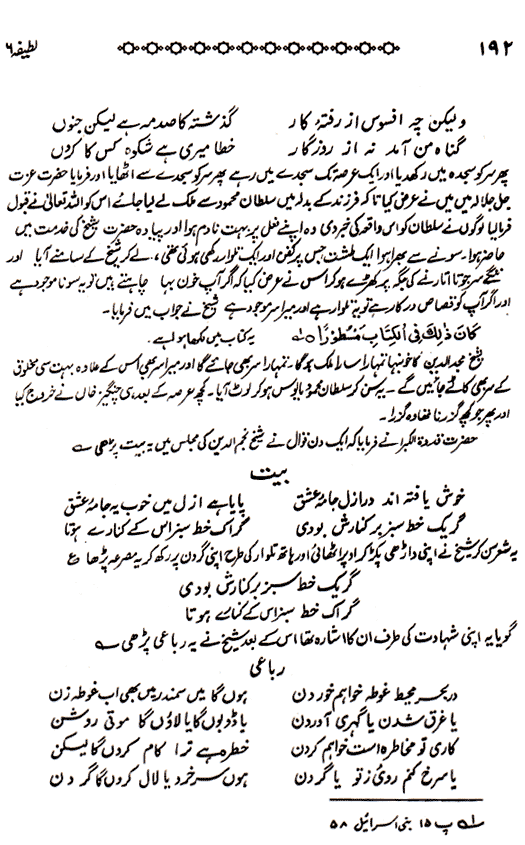 ۱۹۲ لطیفہ ۶
ولیکن چہ افسوس از رفتۂ کار گذشتہ کا صدمہ ہے لیکن جنوں
گناہ من آمد نہ از روزگار خطا میری ہے شکوہ کس کا کروں
پھر سر کو سجدہ میں رکھدیا اور ایک عرصہ تک سجدے میں رہے پھر سر کو سجدے سے اٹھایا اور فرمایا حضرت عزت
جل جلالہ میں میں نے عرض کیا تاکہ فرزند کے بدلہ میں سلطان محمود سے ملک لے لیا جائے اس کو اللہ تعالیٰ نے قبول
فرمایا لوگوں نے سلطان کو اس واقعہ کی خبر دی وہ اپنے فعل پر بہت نادم ہوا اور پیادہ حضرت شیخ کی خدمت میں
حاضر ہوا۔ سونے سے بھرا ہوا ایک طشت جس پر کفن اور ایک تلوار رکھی ہوئی تھی، لے کر شیخ کے سامنے آیا اور
ننگے سر جوتا اتارنے کی جگہ پر کھڑے ہو کر اس نے عرض کیا کہ اگر آپ خون بہا چاہتے ہیں تو یہ سونا موجود ہے
اور اگر آپ کو قصاص درکار ہے تو یہ تلوار ہے اور میرا سر موجود ہے شیخ نے جواب میں فرمایا۔
كَانَ ذٰلِكَ فِى الْكِتَابِ مَسْطُوْرًا ہ لہ یہ کتاب میں لکھا ہوا ہے۔
شیخ مجد الدین کا خونبہا تمہارا سارا ملک ہوگا۔ تمہارا سر بھی جائے گا اور میرا سر بھی اس کے علاوہ بہت سی مخلوق
کے سر بھی کاٹے جائیں گے۔ یہ سن کر سلطان محمود مایوس ہو کر لوٹ آیا۔ کچھ عرصہ کے بعد ہی چنگیز خاں نے خروج کیا
اور پھر جو کچھ گزرنا تھا وہ گزرا۔
حضرت قدوۃ الکبرا نے فرمایا کہ ایک دن قوال نے شیخ نجم الدین کی مجلس میں یہ بیت پڑھی ؎
بیت
خوش یافتہ اند در ازل جامۂ عشق پایا ہے ازل میں خوب یہ جامۂ عشق
گر یک خط سبز بر کنارش بودی گر اک خط سبز اس کے کنارے ہوتا
یہ شعر سن کر شیخ نے اپنی داڑھی پکڑ کر اوپر اٹھائی اور ہاتھ تلوار کی طرح اپنی گردن پر رکھ کر یہ مصرعہ پڑھا ؏
گر یک خط سبز بر کنارش بودی
گر اک خط سبز اس کے کنارے ہوتا
گویا یہ اپنی شہادت کی طرف ان کا اشارہ تھا اس کے بعد شیخ نے یہ رباعی پڑھی ؎
رباعی
در بحر محیط غوطہ خواہم خوردن ہوں گا میں سمندر میں بھی اب غوطہ زن
یا غرق شدن یا گہری آوردن یا ڈوبوں گا یا لاؤں گا موتی روشن
کاری تو مخاطرہ است خواہم کردن خطرہ ہے ترا کام کروں گا لیکن
یا سرخ کنم روئ ز تو یا گردن ہوں سرخرو یا لال کروں گا گردن
لہ پ ۱۵ بنی اسرائیل ۵۸